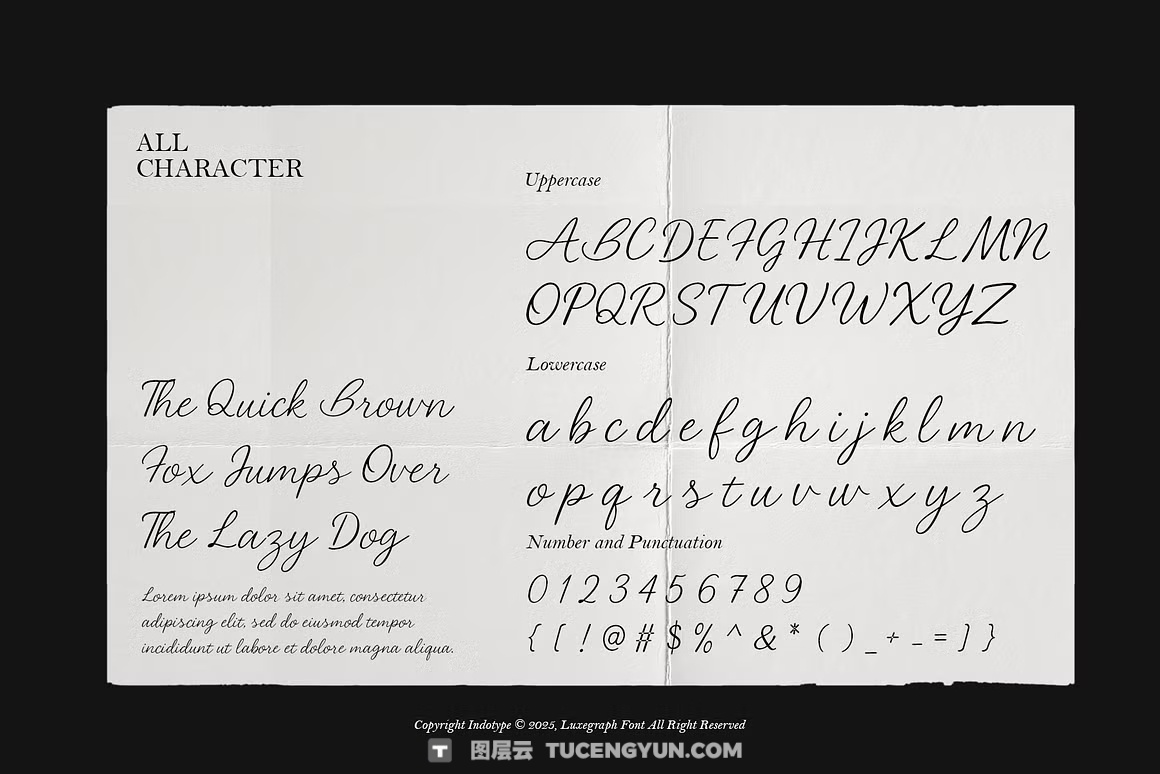 ALL
CHARACTER
The Quick Brown
Fox Jumps Over
The Lazy Dog
Lorem ipsum dolor sit amet, consectetur
adipiscing elit, sed do eiusmod tempor
incididunt ut labore et dolore magna aliqua.
Uppercase
ABCDEFGHIJKLMN
OPQRSTUVWXYZ
Lowercase
a b c d e f g h i j k l m n
o p q r s t u v w x y z
Number and Punctuation
0 1 2 3 4 5 6 7 8 9
{ [ ! @ # $ % ^ & * ( ) _ + - = ] }
Copyright Indotype © 2025, Luxegraph Font All Right Reserved
T 图层云 TUCENGYUN.COM